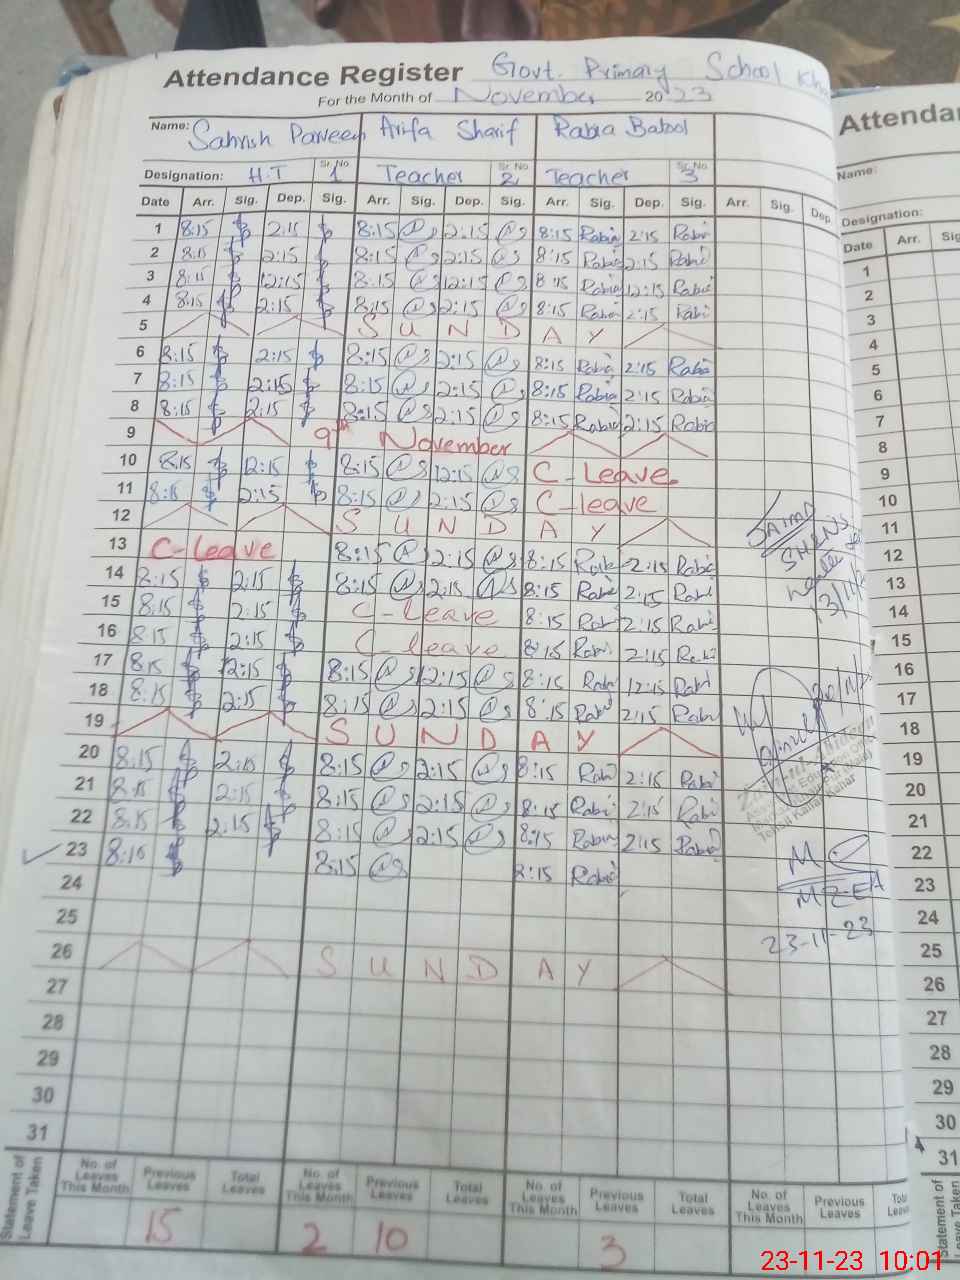 Attendance Register Govt. Primary School
For the Month of November 2023
Name: Sahrish Parveen Arifa Sharif Rabia Batool
Designation: H.T Sr. No 1 Teacher Sr. No 2 Teacher Sr. No 3
Date Arr. Sig. Dep. Sig. Arr. Sig. Dep. Sig. Arr. Sig. Dep. Sig. Arr. Sig. Dep.
1 8:15 2:15 8:15 2:15 8:15 Rabia 2:15 Rabi
2 8:15 2:15 8:15 2:15 8:15 Rabia 2:15 Rabi
3 8:15 12:15 8:15 12:15 8:15 Rabia 12:15 Rabi
4 8:15 2:15 8:15 2:15 8:15 Rabia 2:15 Rabi
5 SUNDAY
6 8:15 2:15 8:15 2:15 8:15 Rabia 2:15 Rabia
7 8:15 2:15 8:15 2:15 8:15 Rabia 2:15 Rabia
8 8:15 2:15 8:15 2:15 8:15 Rabia 2:15 Rabia
9 9th November
10 8:15 12:15 8:15 12:15 C-Leave
11 8:15 2:15 8:15 2:15 C-leave
12 SUNDAY
13 C-leave 8:15 2:15 8:15 2:15 Rabi
14 8:15 2:15 8:15 2:15 8:15 Rabi 2:15 Rabi
15 8:15 2:15 C-leave 8:15 Rabi 2:15 Rabi
16 8:15 2:15 C-leave 8:15 Rabi 2:15 Rabi
17 8:15 12:15 8:15 12:15 8:15 Rabi 12:15 Rabi
18 8:15 2:15 8:15 2:15 8:15 Rabi 2:15 Rabi
19 SUNDAY
20 8:15 2:15 8:15 2:15 8:15 Rabi 2:15 Rabi
21 8:15 2:15 8:15 2:15 8:15 Rabi 2:15 Rabi
22 8:15 2:15 8:15 2:15 8:15 Rabia 2:15 Rabia
23 8:10 8:15 Rabi
24
25
26 SUNDAY
27
28
29
30
31
23-11-23
Statement of Leave Taken
No. of Leaves This Month Previous Leaves Total Leaves No. of Leaves This Month Previous Leaves Total Leaves No. of Leaves This Month Previous Leaves Total Leaves No. of Leaves This Month Previous Leaves
15 2 10 3
Name:
Designation:
Date Arr.
1
2
3
4
5
6
7
8
9
10
11
12
13
14
15
16
17
18
19
20
21
22
23
24
25
26
27
28
29
30
31
Statement of
Leave Taken
23-11-23 10:01